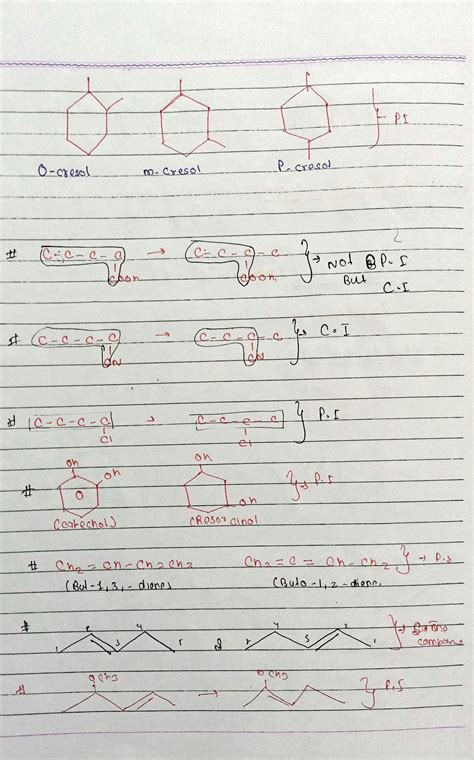 } P.I
O-cresol m-cresol P-cresol
# C-C-C-C → C-C-C-C } → Not P.I
COOH COOH But
C.I
# C-C-C-C → C-C-C-C } C.I
CN CN
# C-C-C-C → C-C-C-C } P.I
Cl Cl
OH OH
# OH OH } → P.I
(catechol) (Resorcinol)
# CH2=CH-CH2CH2 CH2=C=CH-CH2 } → P.I
(But-1,3,-diene) (Buta-1,2-diene
# 1 2 3 4 5 & 5 4 3 2 1 } → Same
OCH3 → OCH3 } P.I